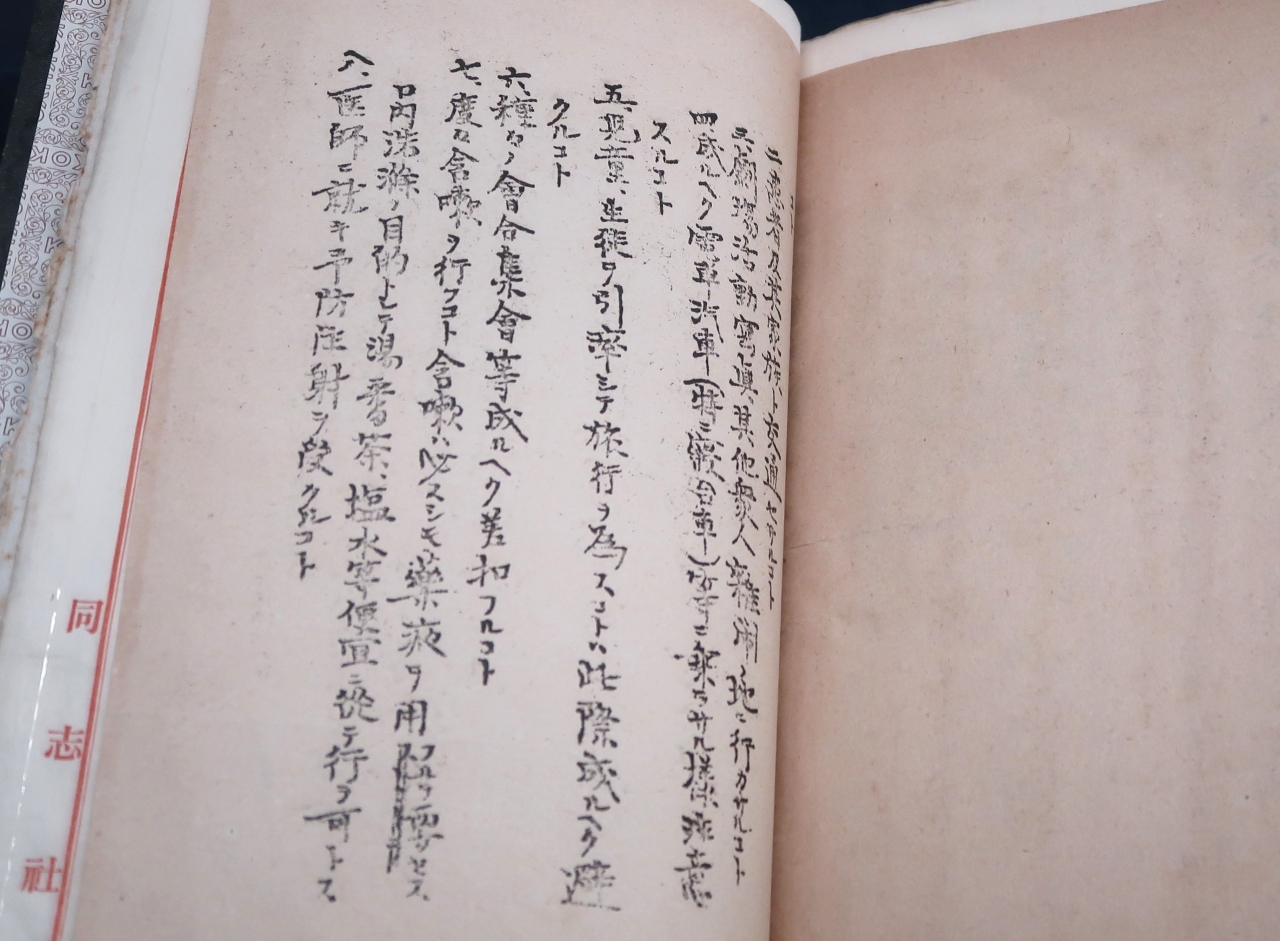 二、患者及其家族ト交通セサルコト
三、劇場活動寫眞其他衆人雜閙ノ地ニ行カサルコト
四、成ルヘク電車汽車(特ニ寢台車)等ニ乘ラサル樣注意
スルコト
五、児童、生徒ヲ引率シテ旅行ヲ為スコトハ此際成ルヘク避
クルコト
六、種々ノ會合集會等成ルヘク差扣フルコト
七、度々含嗽ヲ行フコト含嗽ハ必スシモ藥液ヲ用ユルヲ要セス
口内洗滌ノ目的トシテ湯番茶、塩水等便宜ニ從テ行フ可トス
八、医師ニ就キ予防注射ヲ受クルコト
同志社